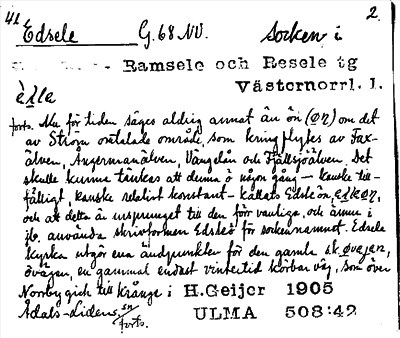 41 2.
Edsele G. 68 NV. Socken i
Ramsele och Resele tg
Västernorrl. l.
forts. Nu för tiden säges aldrig annat än ön (øn) om det
av Ström omtalade område, som kringflytes av Fax-
älven, Ångermanälven, Vängelån och Fjällsjöälven. Det
skulle kunna tänkas att denna ö någon gång – kanske till-
fälligt, kanske relativt konstant – kallats Edsleön,
och att detta är ursprunget till den förr vanliga, och ännu i
jb. använda skrivformen Edsleö för sockennamnet. Edsele
kyrka utgör ena ändpunkten för den gamla s.k. øvägen,
övägen, en gammal endast vintertid körbar väg, som över
Norrby gick till Krånge i H.Geijer 1905
Ådals-Lidens sn ULMA 508:42
forts.